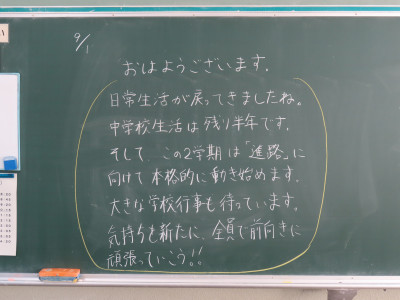 9/1
おはようございます。
日常生活が戻ってきましたね。
中学校生活は残り半年です。
そして この2学期は「進路」に
向けて本格的に動き始めます。
大きな学校行事も待っています。
気持ちを新たに、全員で前向きに
頑張っていこう!!